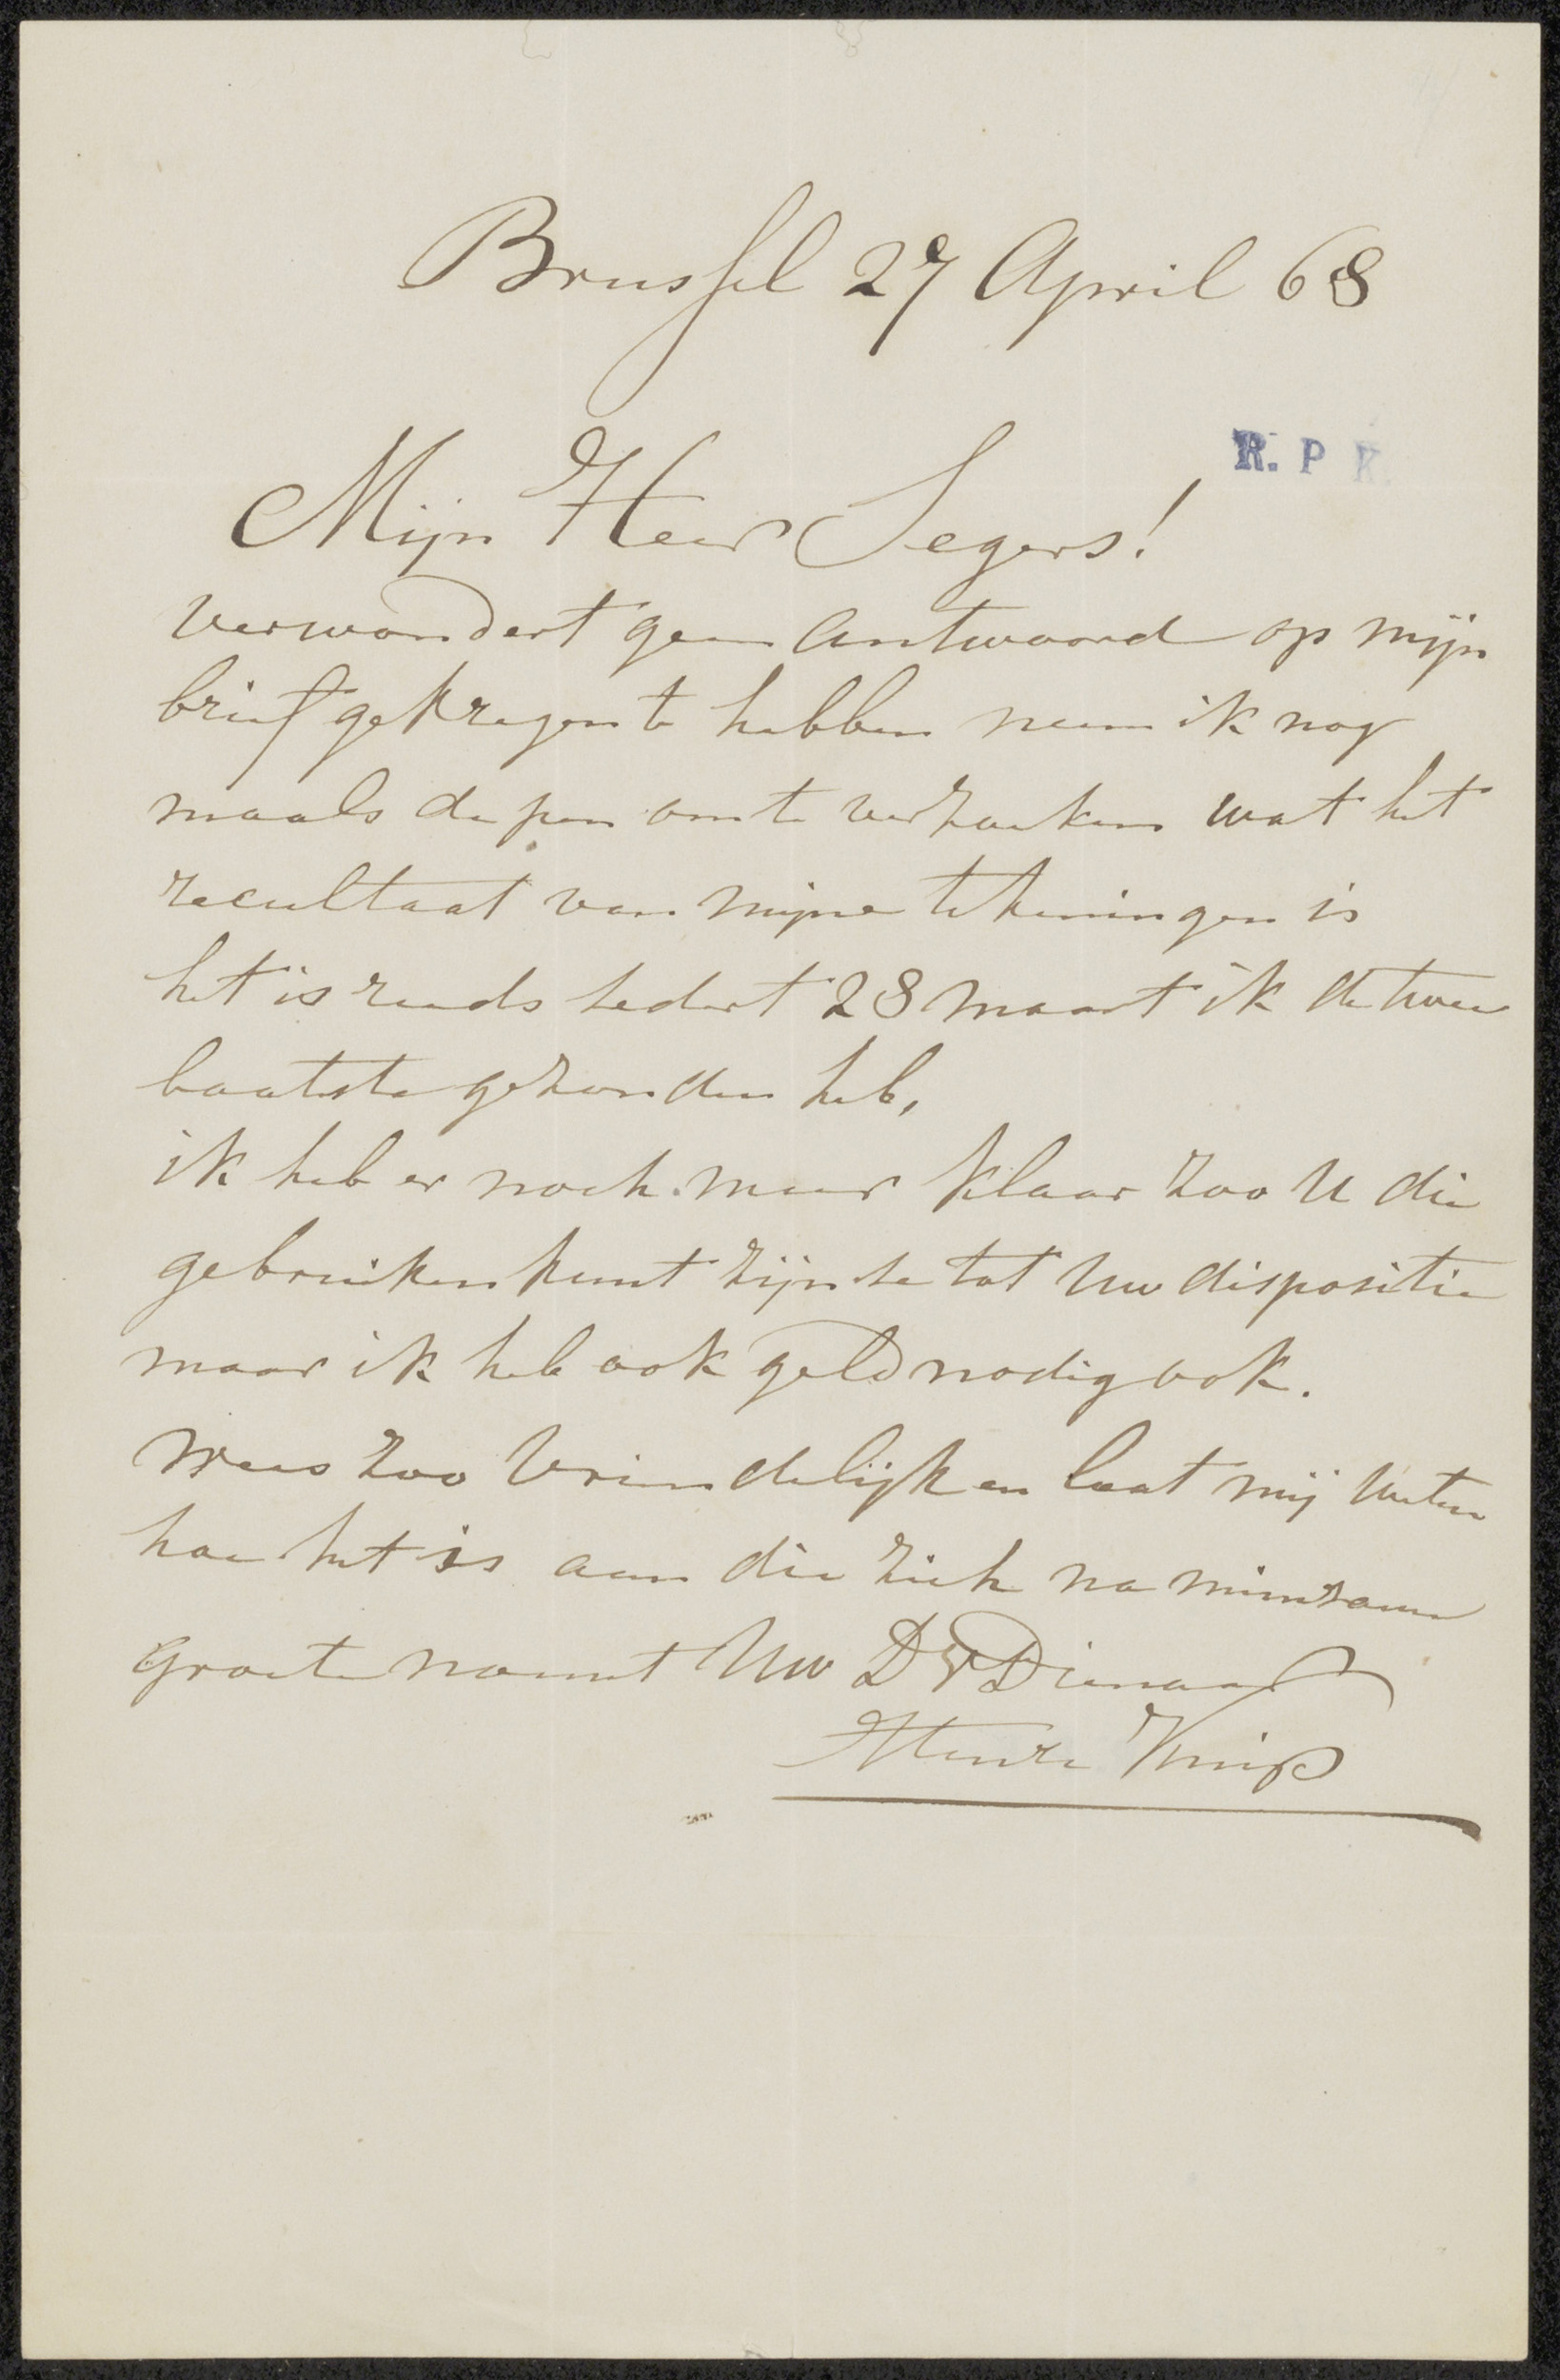 Brussel 27 April 68
R. P K.
Mijn Heer Segers!
verwondert geen antwoord op mijn
brief gekregen te hebben neem ik nog
maals de pen om te verzoeken wat het
recultaat van mijne tekeningen is
het is reeds sedert 28 maart ik de twee
laatste gezonden heb,
ik heb er noch meer klaar zoo U die
gebruiken kunt zijn se tot Uw dispositie
maar ik heb ook geld nodig ook.
wees zoo vriendelijk en laat mij weten
hoe het is aan die zich na minzame
groete noemt Uw Dr Dienaar
Henri Knip